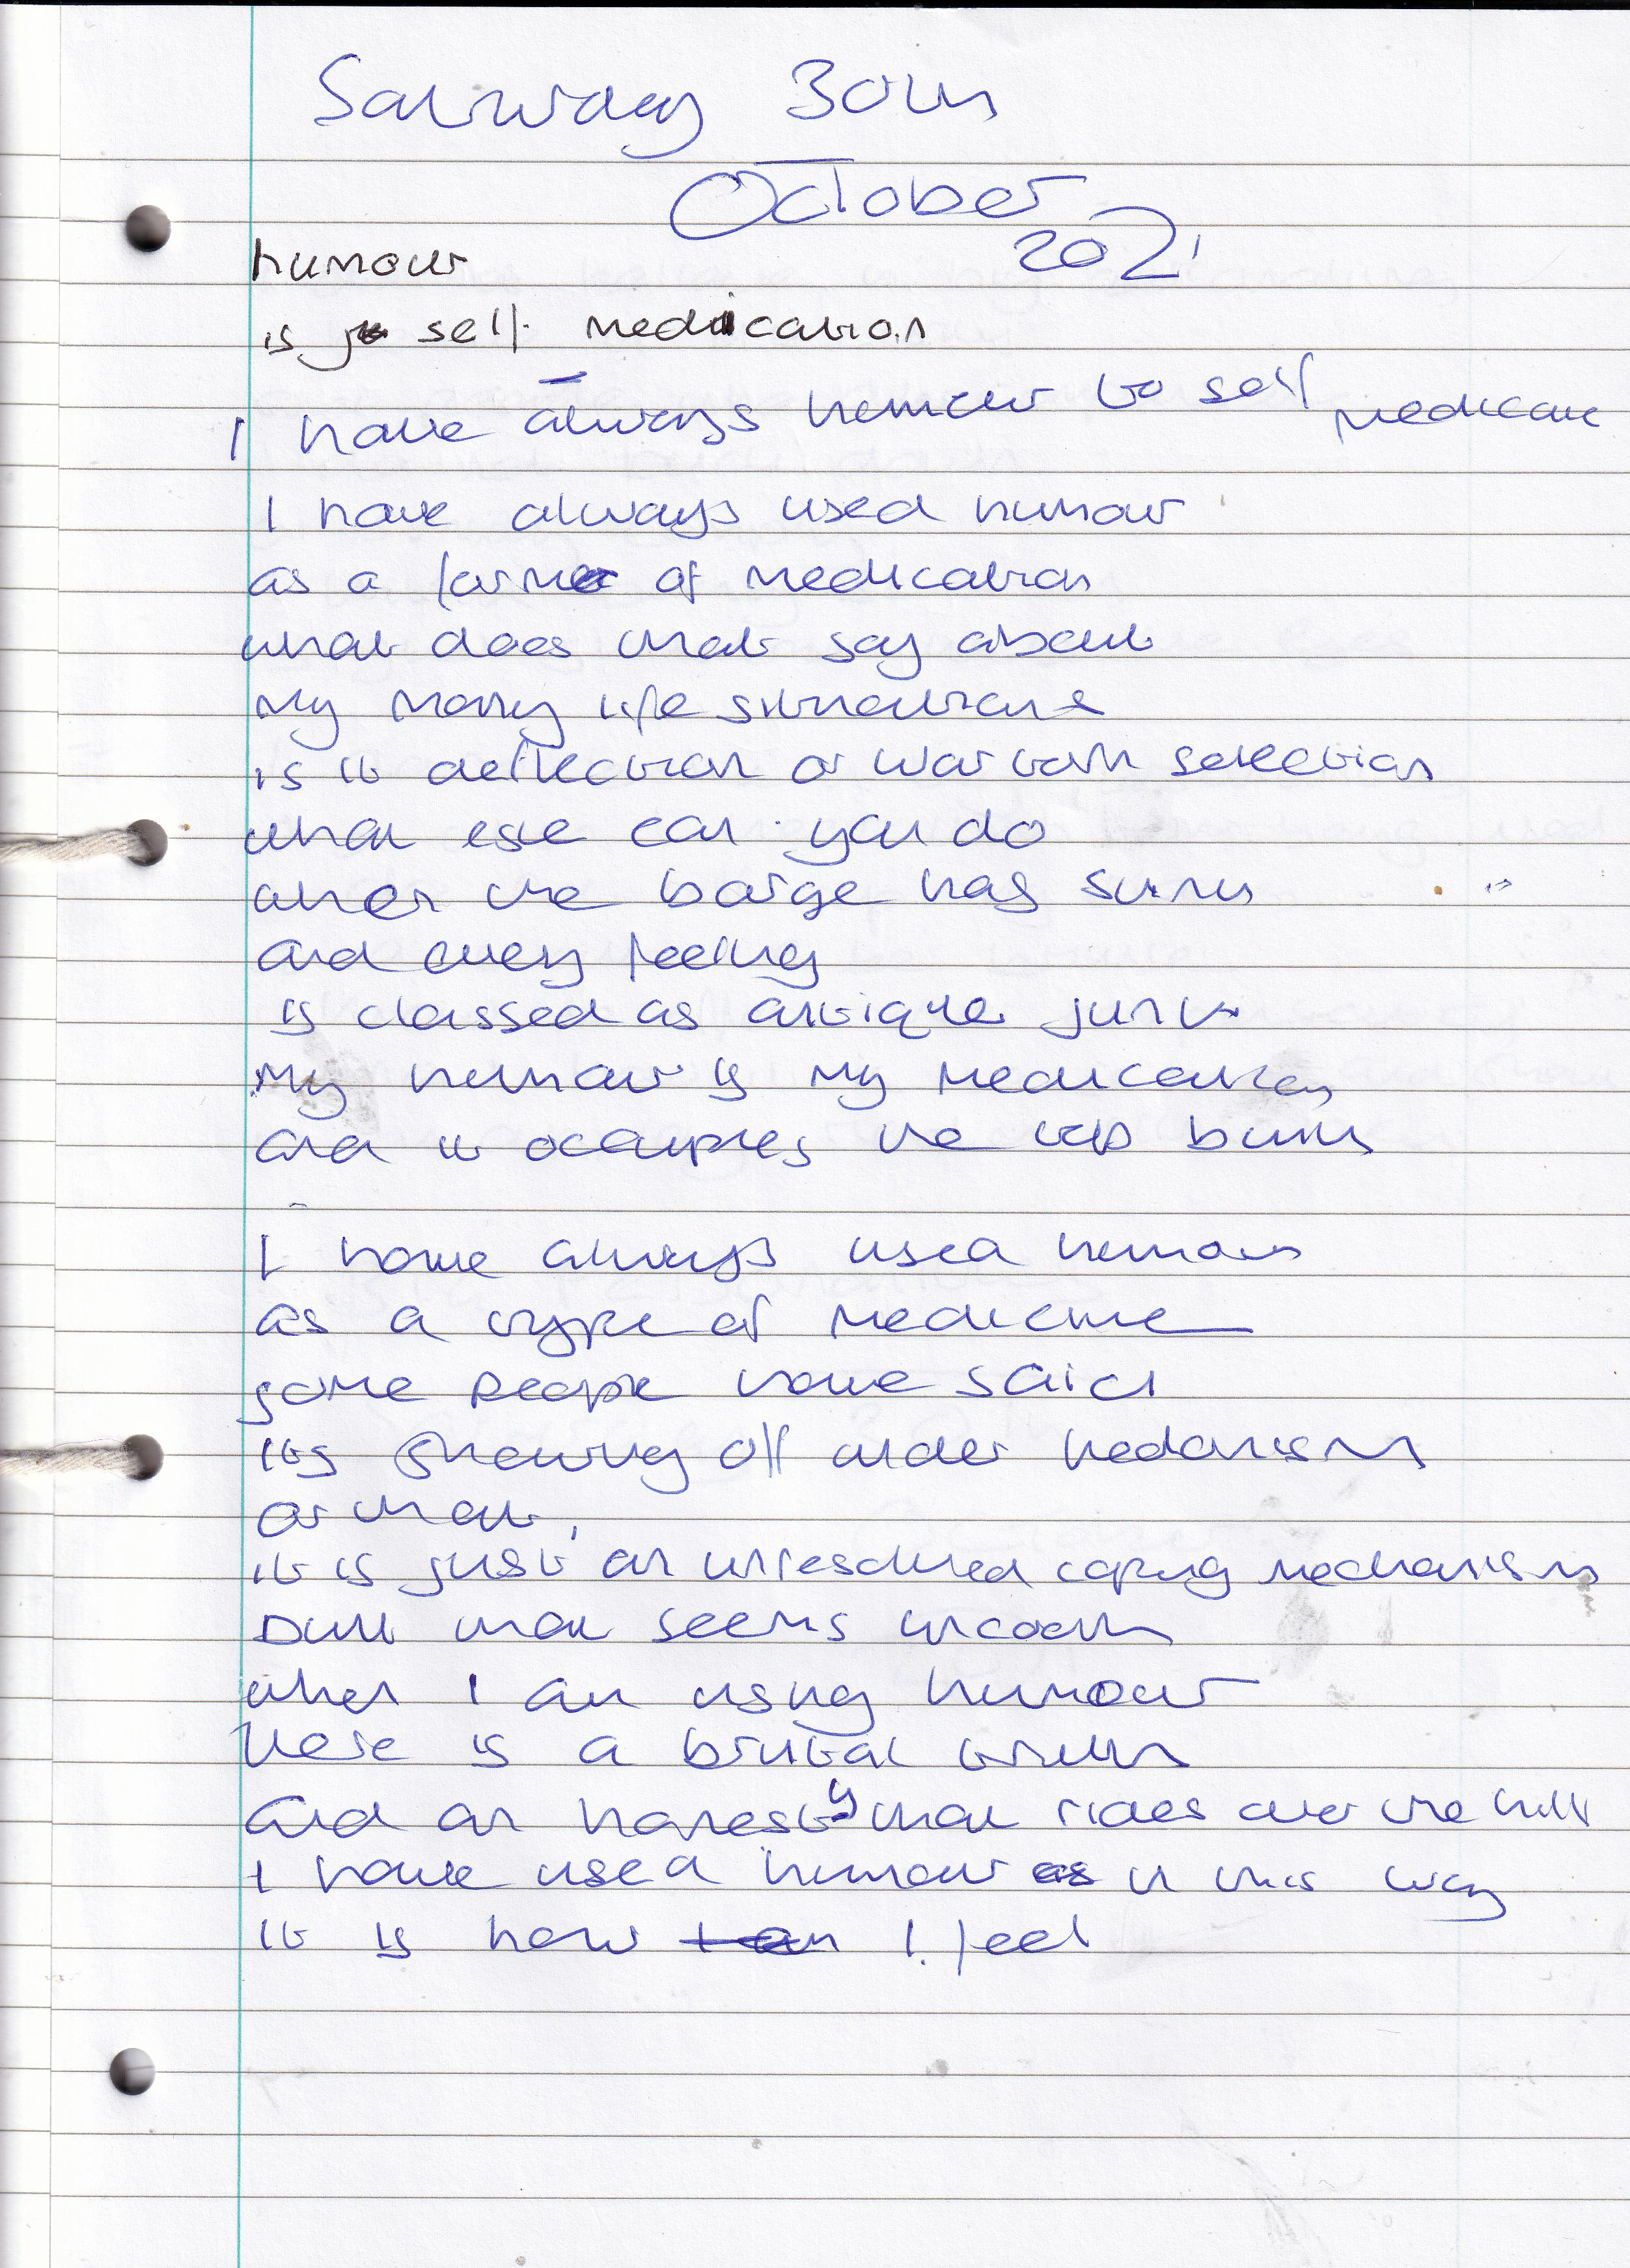 Saturday 30th
October
2021
humour
is self medication
I have always humour to self medicate
I have always used humour
as a form of medication
what does that say about
my many life situations
is it deflection or war torn selection
what esle can you do
when the barge has sunk
and every feeling
is classed as antique junk
My humour is my medication
and it occupies the top bunk
I have always used humour
as a type of medicine
some people have said
its showing off under hedonism
or that,
it is just an unresolved coping mechanism
But that seems uncouth
when I am using humour
there is a brutal truth
and an honesty that rides over the hill
I have used humour in this way
it is how I feel